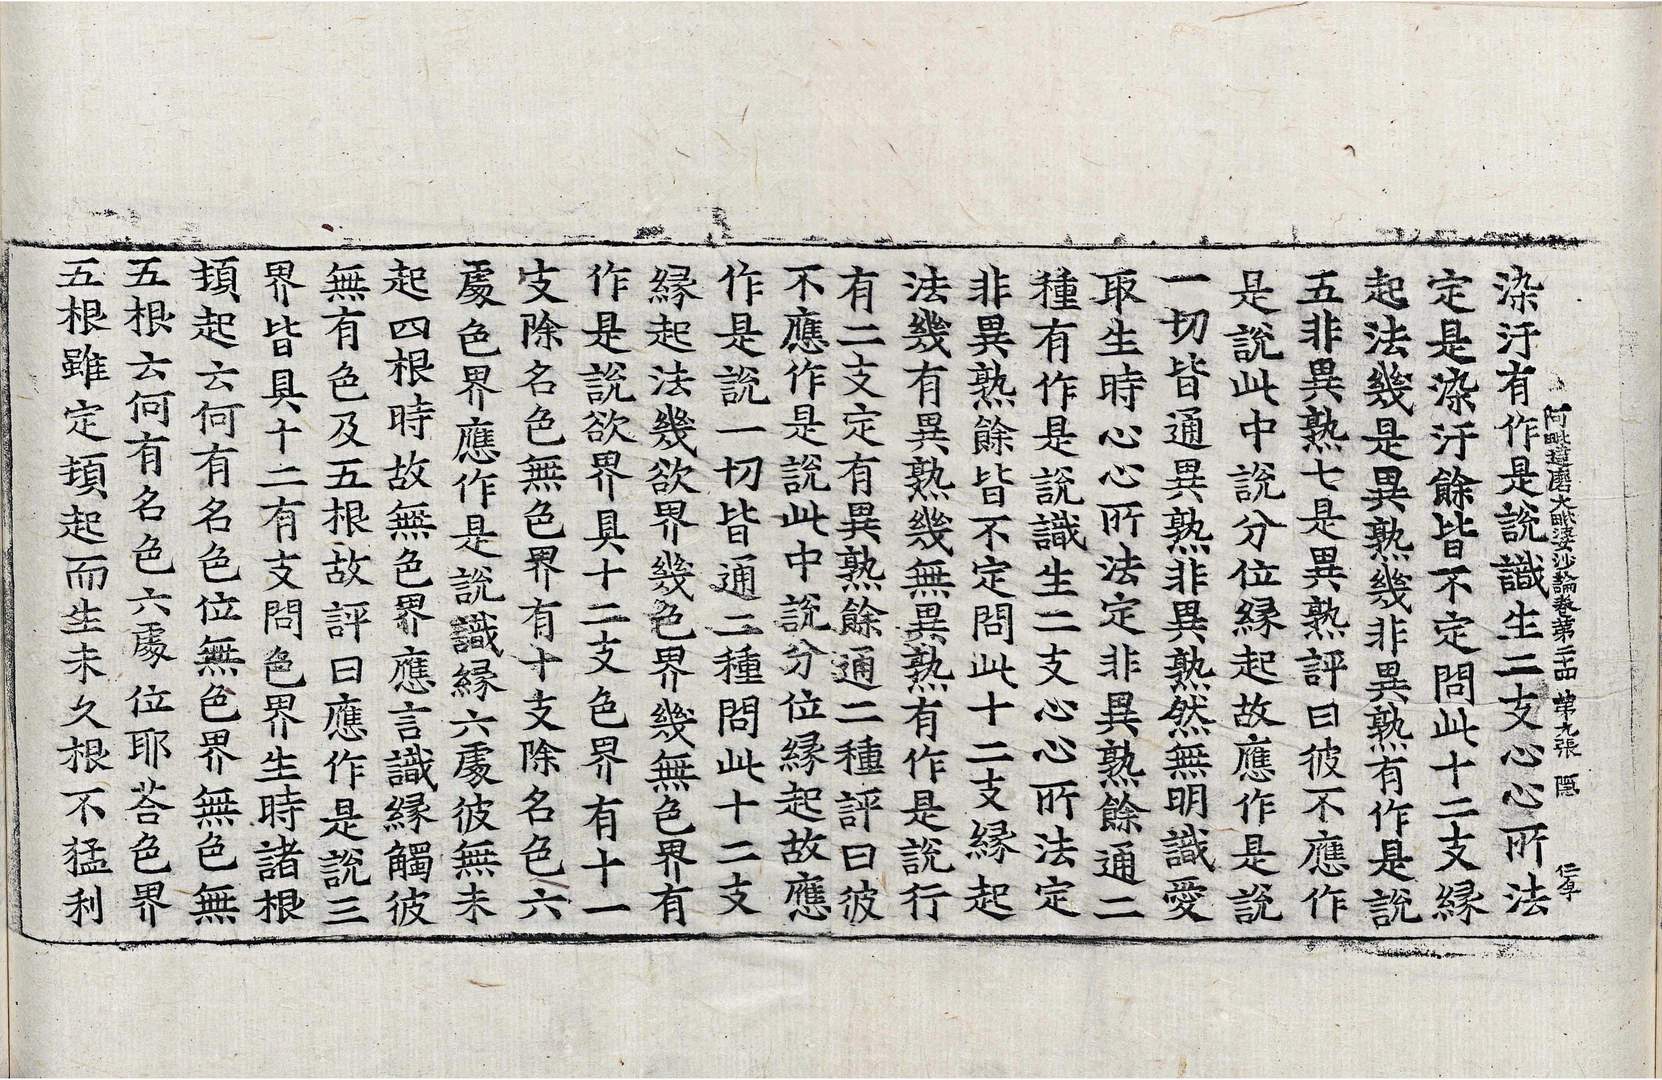 阿毗達磨大毗婆沙論卷第二十四 第九張 隱 仁亨
染汙有作是說識生二支心心所法
定是染汙餘皆不定問此十二支緣
起法幾是異熟幾非異熟有作是說
五非異熟七是異熟評曰彼不應作
是說此中說分位緣起故應作是說
一切皆通異熟非異熟然無明識愛
取生時心心所法定非異熟餘通二
種有作是說識生二支心心所法定
非異熟餘皆不定問此十二支緣起
法幾有異熟幾無異熟有作是說行
有二支定有異熟餘通二種評曰彼
不應作是說此中說分位緣起故應
作是說一切皆通二種問此十二支
緣起法幾欲界幾色界幾無色界有
作是說欲界具十二支色界有十一
支除名色無色界有十支除名色六
處色界應作是說識緣六處彼無未
起四根時故無色界應言識緣觸彼
無有色及五根故評曰應作是說三
界皆具十二有支問色界生時諸根
頓起云何有名色位無色界無色無
五根云何有名色六處位耶荅色界
五根雖定頓起而生未久根不猛利